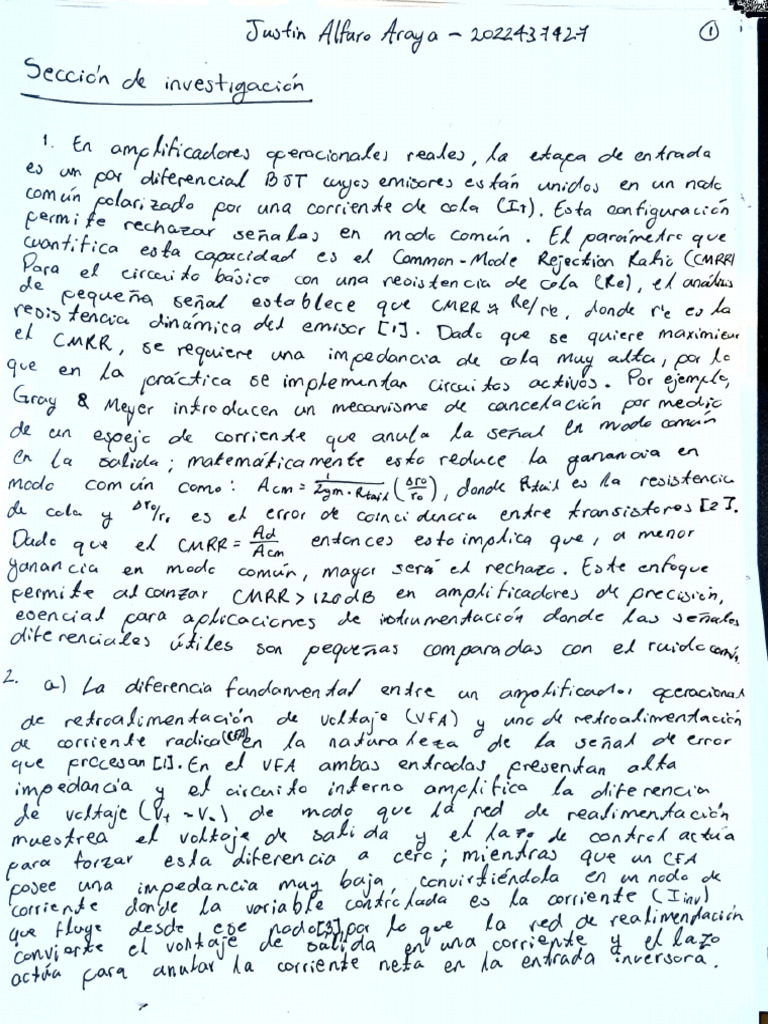 Justin Alfaro Araya - 2022437427
1
Sección de investigación
1. En amplificadores operacionales reales, la etapa de entrada
es un par diferencial BJT cuyos emisores están unidos en un nodo
común polarizado por una corriente de cola (IT). Esta configuración
permite rechazar señales en modo común. El parámetro que
cuantifica esta capacidad es el Common-Mode Rejection Ratio (CMRR)
Para el circuito básico con una resistencia de cola (Re), el análisis
de pequeña señal establece que CMRR ≈ Re/r'e, donde r'e es la
resistencia dinámica del emisor [1]. Dado que se quiere maximizar
el CMRR, se requiere una impedancia de cola muy alta, por lo
que en la práctica se implementan circuitos activos. Por ejemplo,
Gray & Meyer introducen un mecanismo de cancelación por medio
de un espejo de corriente que anula la señal en modo común
en la salida; matemáticamente esto reduce la ganancia en
modo común como: Acm = 1/(2gm·Rtail) (Δro/ro), donde Rtail es la resistencia
de cola y Δro/ro es el error de coincidencia entre transistores [2].
Dado que el CMRR = Ad/Acm entonces esto implica que, a menor
ganancia en modo común, mayor será el rechazo. Este enfoque
permite alcanzar CMRR > 120dB en amplificadores de precisión,
esencial para aplicaciones de instrumentación donde las señales
diferenciales útiles son pequeñas comparadas con el ruido común.
2. a) La diferencia fundamental entre un amplificador operacional
de retroalimentación de voltaje (VFA) y uno de retroalimentación
de corriente radica (CFA) en la naturaleza de la señal de error
que procesan [1]. En el VFA ambas entradas presentan alta
impedancia y el circuito interno amplifica la diferencia
de voltaje (V+ - V-) de modo que la red de realimentación
muestrea el voltaje de salida y el lazo de control actúa
para forzar esta diferencia a cero; mientras que un CFA
posee una impedancia muy baja, convirtiéndola en un nodo de
corriente donde la variable controlada es la corriente (Iinv)
que fluye desde ese nodo [3] por lo que la red de realimentación
convierte el voltaje de salida en una corriente y el lazo
actúa para anular la corriente neta en la entrada inversora.